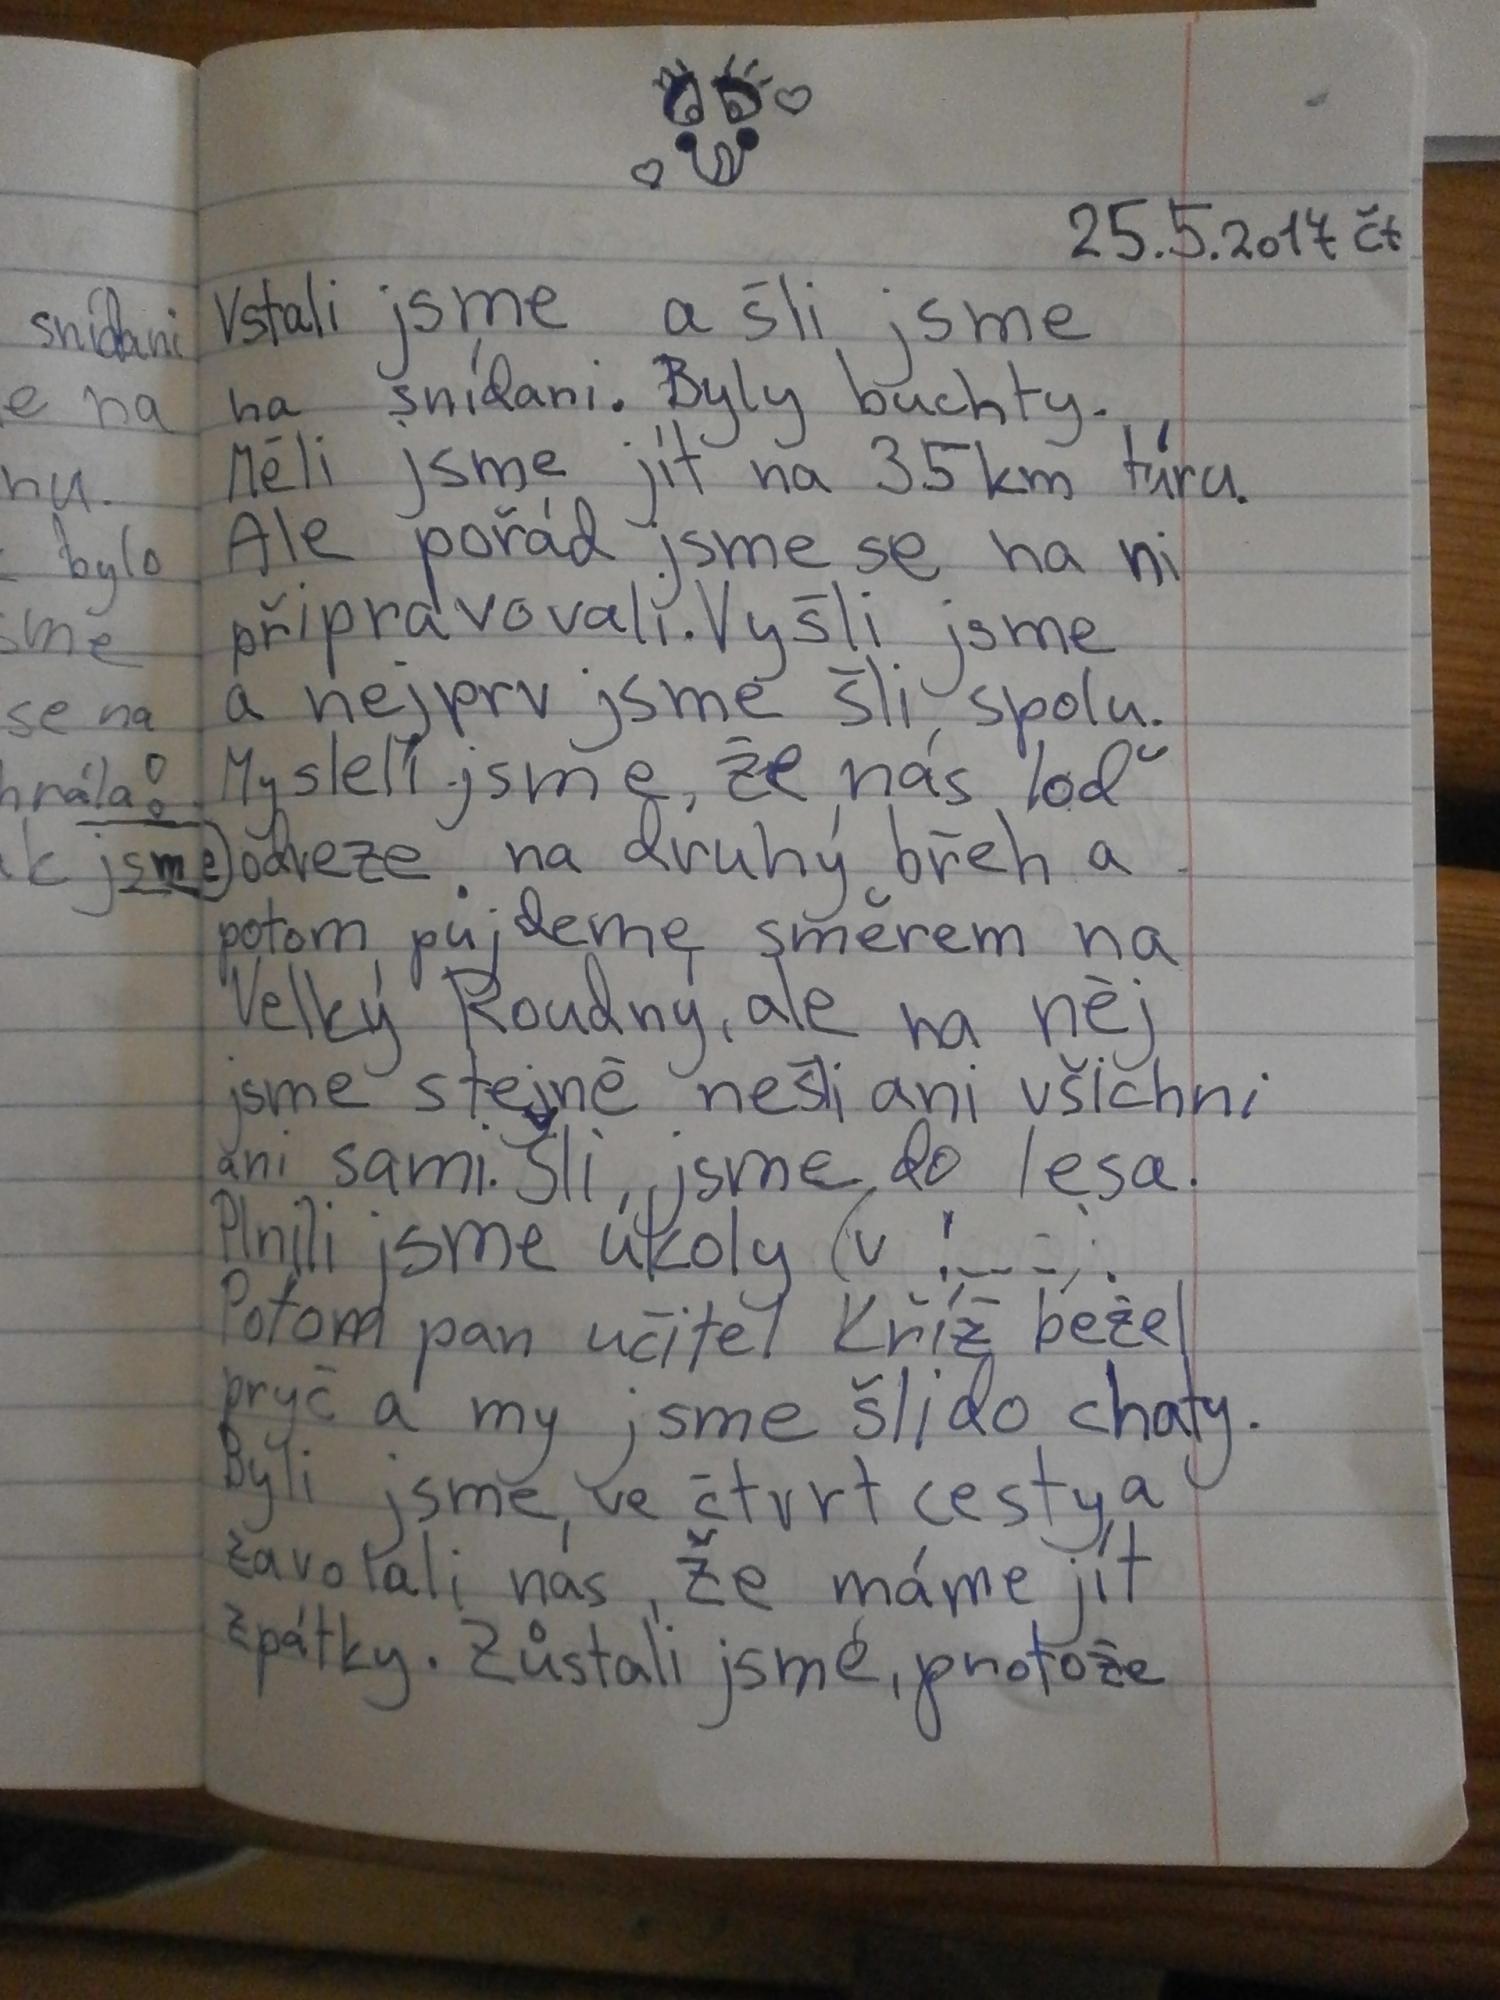 snídani
e na
nu.
bylo
sme
se na
hrála
jsme
25.5.2017 čt
Vstali jsme a šli jsme
na snídani. Byly buchty.
Měli jsme jít na 35km túru.
Ale pořád jsme se na ni
připravovali. Vyšli jsme
a nejprv jsme šli spolu.
Mysleli jsme, že nás loď
odveze na druhý břeh a
potom půjdeme směrem na
Velký Roudný, ale na něj
jsme stejně nešli ani všichni
ani sami. Šli jsme do lesa.
Plnili jsme úkoly (v
Potom pan učitel Kříž běžel
pryč a my jsme šli do chaty.
Byli jsme ve čtvrt cesty a
zavolali nás, že máme jít
zpátky. Zůstali jsme, protože